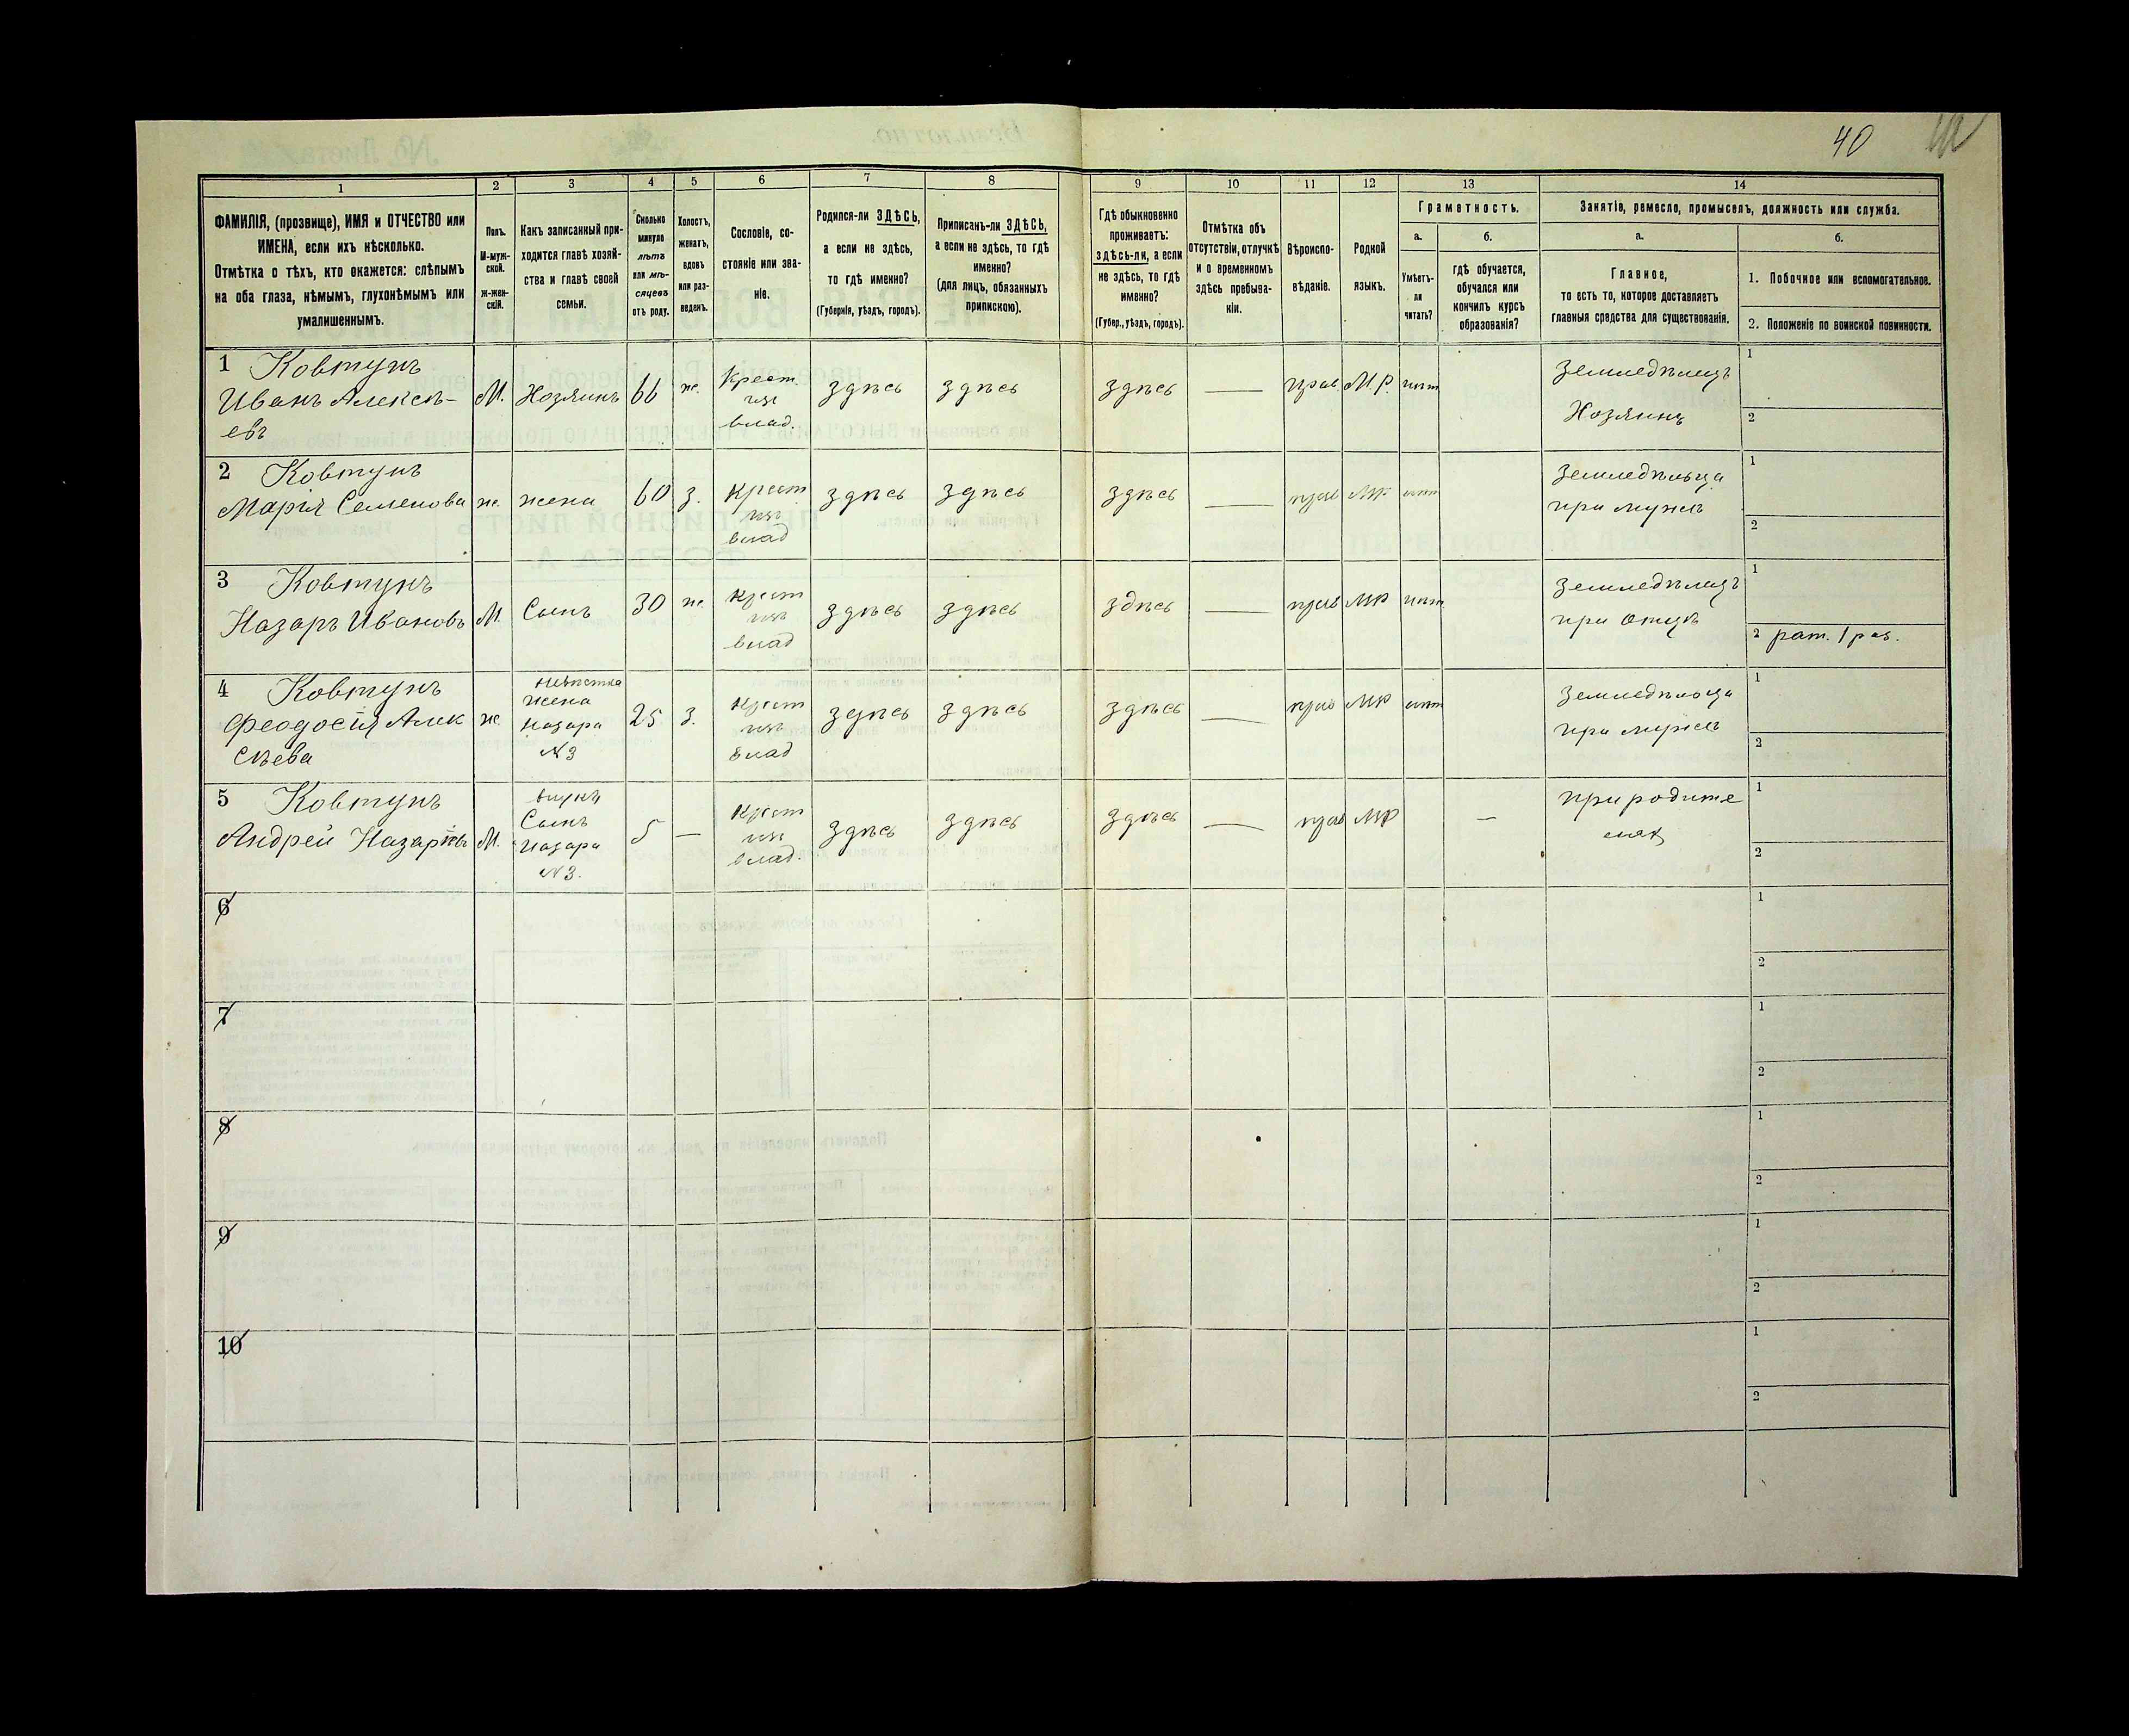 40
1 2 3 4 5 6 7 8 9 10 11 12 13 14
ФАМИЛІЯ, (прозвище), ИМЯ и ОТЧЕСТВО или
ИМЕНА, если ихъ нѣсколько.
Отмѣтка о тѣхъ, кто окажется: слѣпымъ
на оба глаза, нѣмымъ, глухонѣмымъ или
умалишеннымъ.
Полъ.
М-муж-
ской.
ж-жен-
скій.
Какъ записанный при-
ходится главѣ хозяй-
ства и главѣ своей
семьи.
Сколько
минуло
лѣтъ
или мѣ-
сяцевъ
отъ роду.
Холостъ,
женатъ,
вдовъ
или раз-
веденъ.
Сословіе, со-
стояніе или зва-
ніе.
Родился-ли ЗДѢСЬ,
а если не здѣсь,
то гдѣ именно?
(Губернія, уѣздъ, городъ).
Приписанъ-ли ЗДѢСЬ,
а если не здѣсь, то гдѣ
именно?
(для лицъ, обязанныхъ
припискою).
Гдѣ обыкновенно
проживаетъ:
здѣсь-ли, а если
не здѣсь, то гдѣ
именно?
(Губер., уѣздъ, городъ).
Отмѣтка объ
отсутствіи, отлучкѣ
и о временномъ
здѣсь пребыва-
ніи.
Вѣроиспо-
вѣданіе.
Родной
языкъ.
Граметность.
а.
Умѣетъ-
ли
читать?
б.
гдѣ обучается,
обучался или
кончилъ курсъ
образованія?
Занятіе, ремесло, промыселъ, должность или служба.
а.
Главное,
то есть то, которое доставляетъ
главныя средства для существованія.
б.
1. Побочное или вспомогательное.
2. Положеніе по воинской повинности.
1 Ковтунъ
Иванъ Алексѣ-
евъ
М.
Хозяинъ
66
ж.
Крест.
изъ
влад.
здѣсь
здѣсь
здѣсь
—
прав.
М.Р.
нѣт
Земледѣлецъ
Хозяинъ
1
2
2 Ковтунъ
Марія Семенова
ж.
жена
60
з.
Крест
изъ
влад
здѣсь
здѣсь
здѣсь
—
прав
МР
нѣт
Земледѣльца
при мужѣ
1
2
3 Ковтунъ
Назаръ Ивановъ
М.
Сынъ
30
ж.
Крест
изъ
влад
здѣсь
здѣсь
здѣсь
—
прав
МР
нѣт
Земледѣлецъ
при отцѣ
1
2 рат. 1 раз.
4 Ковтунъ
Феодосія Алек
сѣева
ж.
невѣстка
жена
Назара
N 3
25
з.
Крест
изъ
влад
здѣсь
здѣсь
здѣсь
—
прав
МР
нѣт
Земледѣльца
при мужѣ
1
2
5 Ковтунъ
Андрей Назаровъ
М.
внукъ
Сынъ
Назара
N 3.
5
—
Крест
изъ
влад.
здѣсь
здѣсь
здѣсь
—
прав
МР
—
при родите
ляхъ
1
2
6
1
2
7
1
2
8
1
2
9
1
2
10
1
2